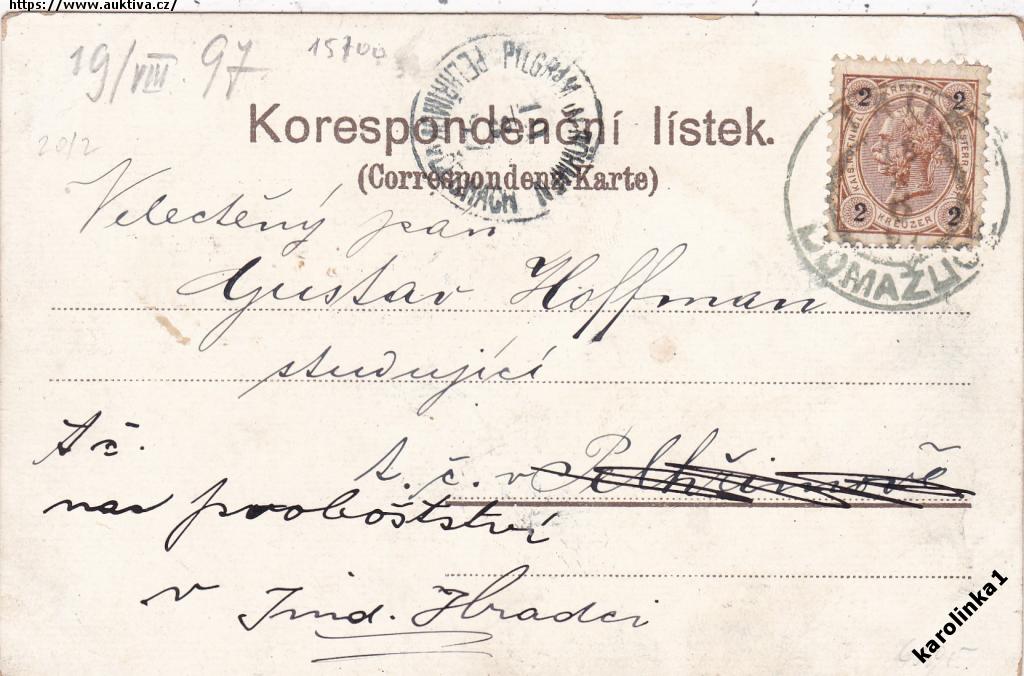 https://www.auktiva.cz/
19/VIII 97
15700
20/2
PELHŘIMOV PILGRAM
Korespondenční lístek.
(Correspondenz-Karte)
2 2
KREUZER
2 KREUZER 2
DOMAŽLICE
Velectěný pan
Gustav Hoffman
studující
t. č. v Pelhřimově
t č.
na proboštství
v Jind. Hradci
karolinka1